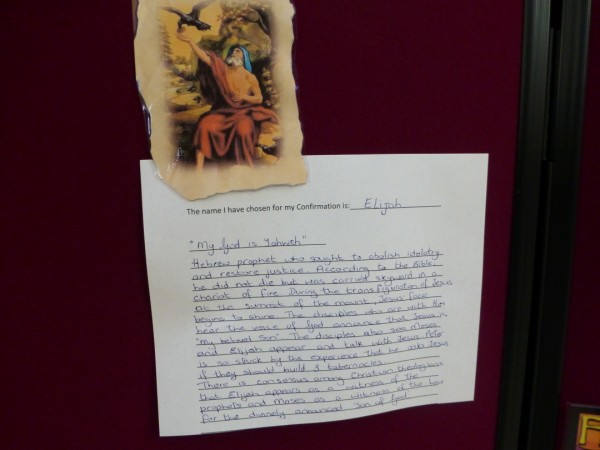 The name I have chosen for my Confirmation is: Elijah
"My God is Yahweh"
Hebrew prophet who sought to abolish idolatry
and restore justice. According to the Bible
he did not die but was carried skyward in a
chariot of fire. During the transfiguration of Jesus
at the summit of the mount, Jesus face
begins to shine. The disciples who are with Him
hear the voice of God announce that Jesus is
"my beloved Son". The disciples also see Moses
and Elijah appear and talk with Jesus. Peter
is so struck by the experience that he asks Jesus
if they should build 3 tabernacles
There is consensus among Christian theologians
that Elijah appears as a witness of the
prophets and Moses as a witness of the law
for the divinely announced Son of God